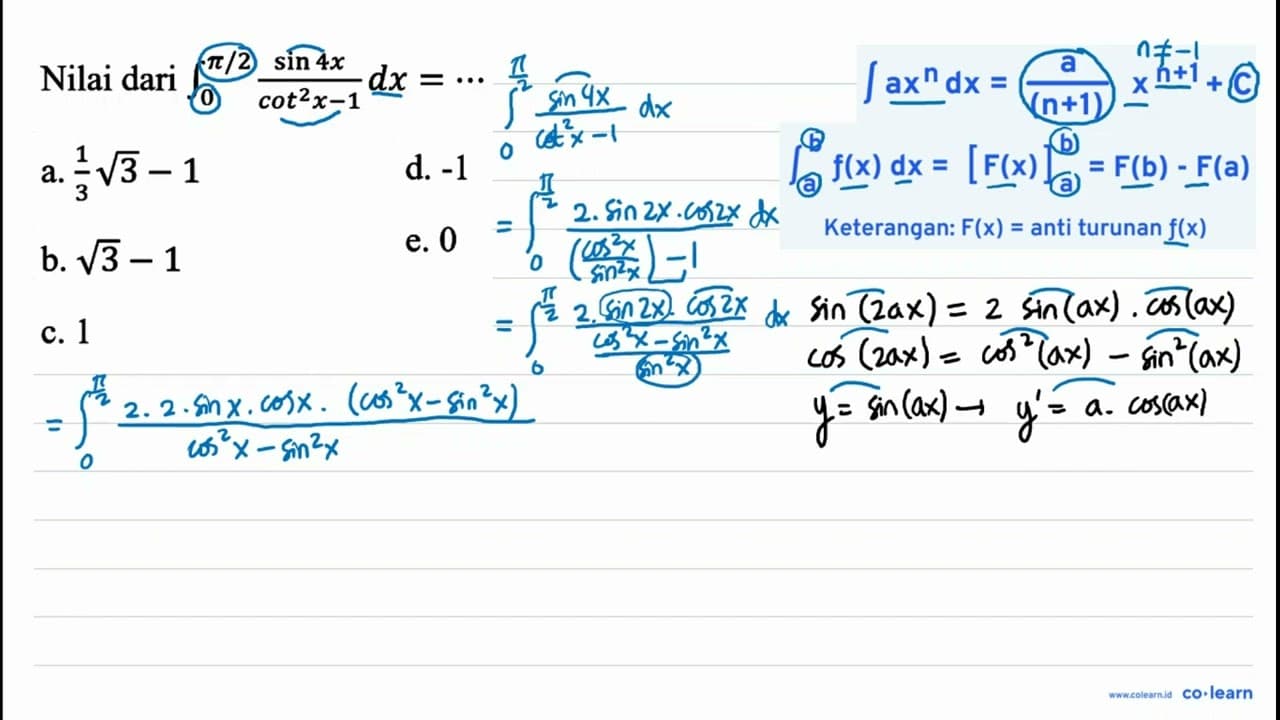 Nilai dari ∫₀^{π/2} sin 4x / (cot²x−1) dx = ⋯
a. 1/3 √3 − 1
b. √3 − 1
c. 1
d. -1
e. 0
∫₀^{π/2} sin 4x / (cot²x − 1) dx
= ∫₀^{π/2} 2. sin 2x . cos 2x dx / ((cos²x / sin²x) − 1)
= ∫₀^{π/2} 2. sin 2x . cos 2x / ((cos²x − sin²x) / sin²x) dx
= ∫₀^{π/2} 2. 2. sin x . cos x . (cos²x − sin²x) / (cos²x − sin²x)
n ≠ −1
∫ axⁿ dx = a / (n+1) x^{n+1} + C
∫ₐᵇ f(x) dx = [F(x)]ₐᵇ = F(b) - F(a)
Keterangan: F(x) = anti turunan f(x)
sin (2ax) = 2 sin(ax) . cos(ax)
cos (2ax) = cos²(ax) − sin²(ax)
y = sin(ax) → y' = a. cos(ax)
www.colearn.id co·learn